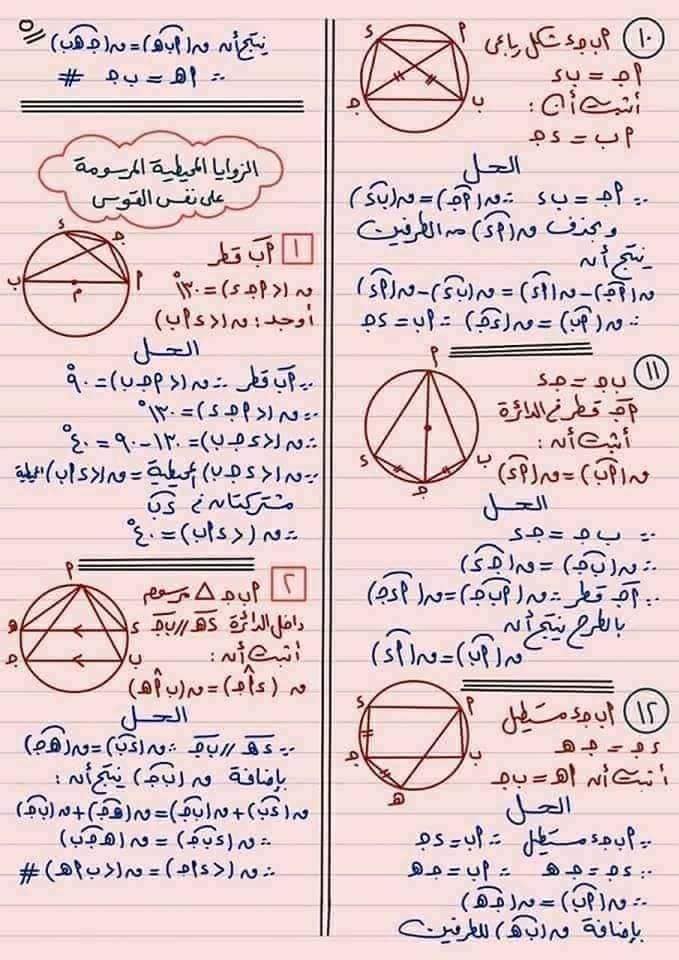 ١٠
أ ب جـ د شكل رباعى
أ جـ = ب د
أثبت أن :
أ ب = د جـ
الحل
∵ أ جـ = ب د ∴ ق(أ جـ) = ق(ب د)
و بحذف ق(أ د) من الطرفين
ينتج أن
ق(أ جـ) - ق(أ د) = ق(ب د) - ق(أ د)
∴ ق(أ ب) = ق(د جـ) ∴ أ ب = د جـ
١١
ب جـ = جـ د
أ جـ قطر فى الدائرة
أثبت أن :
ق(أ ب) = ق(أ د)
الحل
∵ ب جـ = جـ د
∴ ق(ب جـ) = ق(جـ د)
∵ أ جـ قطر ∴ ق(أ ب جـ) = ق(أ د جـ)
بالطرح ينتج أن
ق(أ ب) = ق(أ د)
١٢
أ ب جـ د مستطيل
د جـ = جـ هـ
أثبت أن أ هـ = ب جـ
الحل
∵ أ ب جـ د مستطيل ∴ أ ب = د جـ
∵ د جـ = جـ هـ ∴ أ ب = جـ هـ
∴ ق(أ ب) = ق(جـ هـ)
بإضافة ق(ب هـ) للطرفين
ينتج أن ق(أ ب هـ) = ق(جـ هـ ب)
∴ أ هـ = ب جـ #
٥
الزوايا المحيطية المرسومة
على نفس القوس
١
أ ب قطر
ق(> أ جـ د) = ١٣٠°
أوجد : ق(> د أ ب)
الحل
∵ أ ب قطر ∴ ق(> أ جـ ب) = ٩٠°
∵ ق(> أ جـ د) = ١٣٠°
∴ ق(> د جـ ب) = ١٣٠ - ٩٠ = ٤٠°
∵ ق(> د جـ ب) المحيطية = ق(> د أ ب) المحيطية
مشتركتان فى د ب
∴ ق(> د أ ب) = ٤٠°
٢
أ ب جـ △ مرسوم
داخل الدائرة د هـ // ب جـ
أثبت أن :
ق(د أ جـ) = ق(ب أ هـ)
الحل
∵ د هـ // ب جـ ∴ ق(د ب) = ق(هـ جـ)
بإضافة ق(ب جـ) ينتج أن :
ق(د ب) + ق(ب جـ) = ق(هـ جـ) + ق(ب جـ)
∴ ق(د ب جـ) = ق(هـ جـ ب)
∴ ق(> د أ جـ) = ق(> ب أ هـ) #